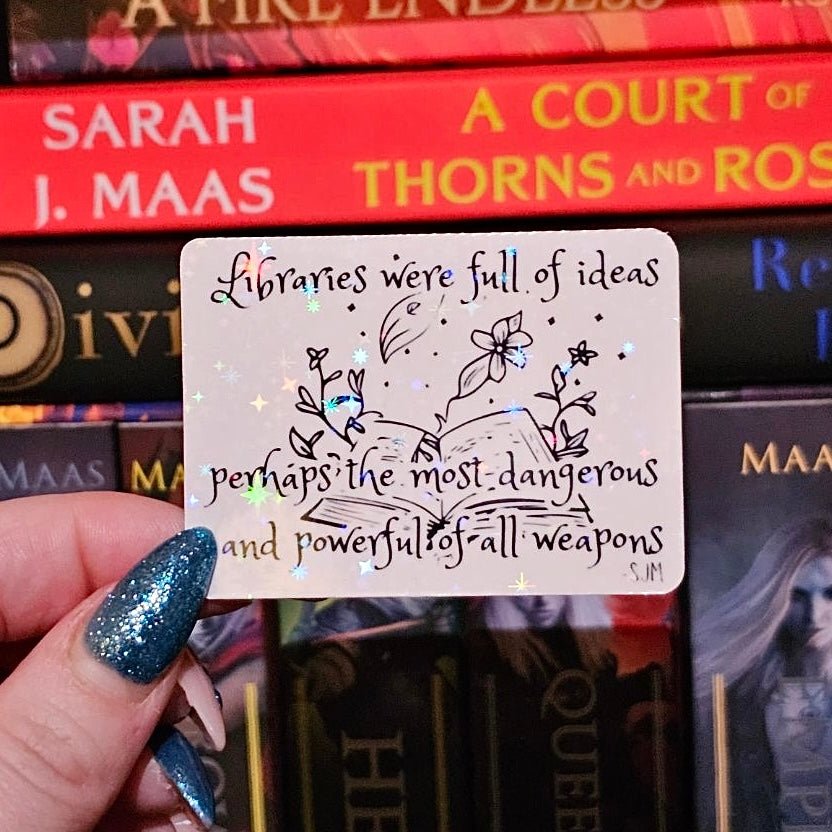 A FIRE ENDLESS
SARAH
J. MAAS
A COURT OF
THORNS AND ROS
ivi
Re
Libraries were full of ideas
perhaps the most dangerous
and powerful of all weapons
-SJM
MAAS
MA
MAA
HE
QUEE